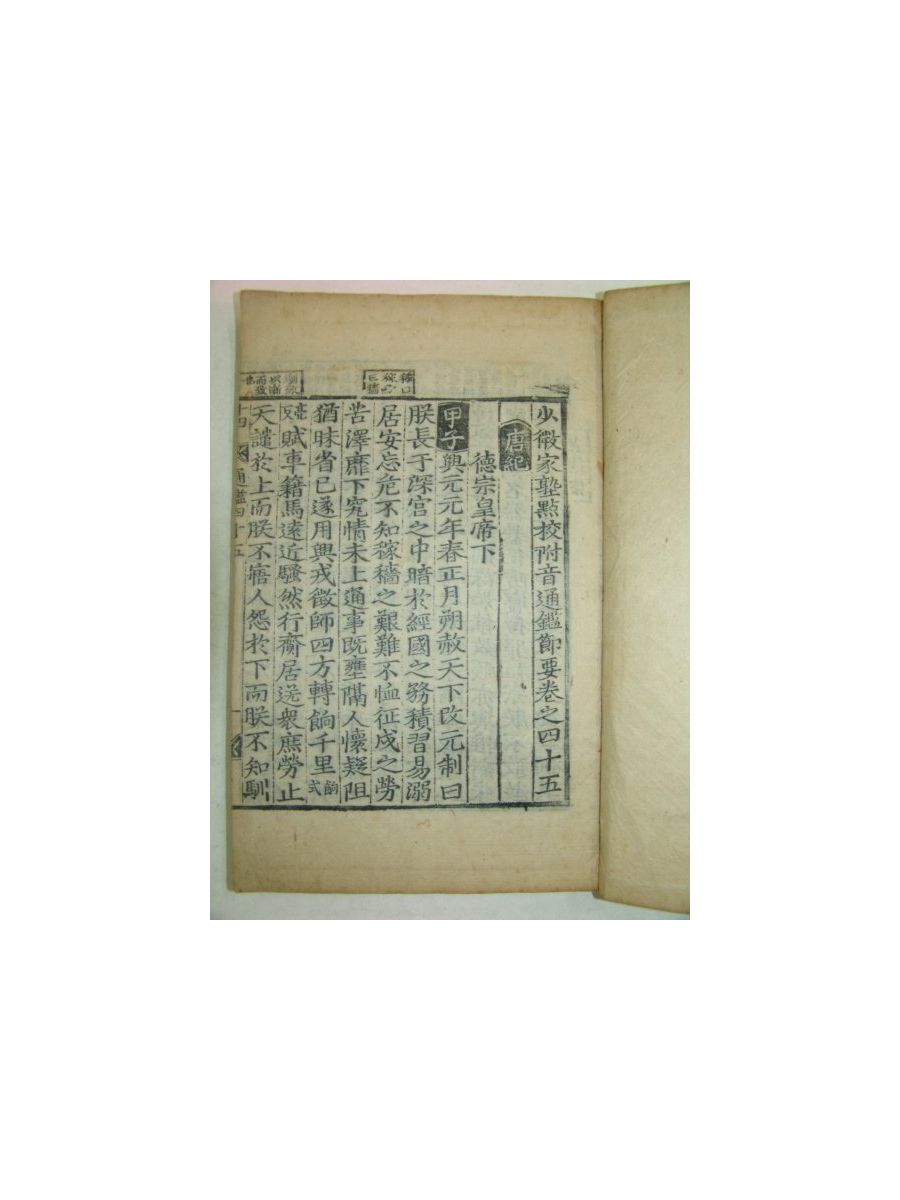 少微家塾點校附音通鑑節要卷之四十五
唐紀
德宗皇帝下
甲子興元元年春正月朔赦天下改元制曰
朕長于深宫之中暗於經國之務積習易溺
居安忘危不知稼穡之艱難不恤征戍之勞
苦澤靡下究情未上通事既壅隔人懷疑阻
猶昧省己遂用興戎徵師四方轉餉千里餉式
亮反賦車籍馬遠近騷然行齎居送衆庶勞止
天譴於上而朕不寤人怨於下而朕不知馴
通鑑四十五